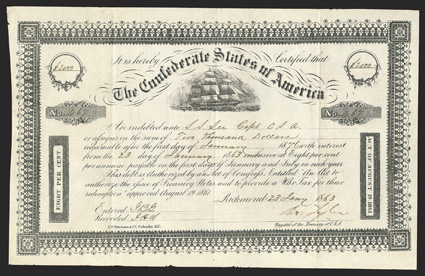 It is hereby Certified that
$2000 $2000
The Confederate States of America
No. No.
Are indebted unto S. S. Lee Capt C.S.N.
or assigns in the sum of Two Thousand Dollars
redeemable after the first day of January 1876 with interest
from the 23 day of January 1863 inclusive at Eight per cent
per annum payable on the first days of January and July in each year
This debt is authorized by an act of Congress Entitled An Act to
authorize the issue of Treasury Notes and to provide a War Tax for their
redemption approved August 19. 1861
EIGHT PER CENT
ACT OF AUGUST 19. 1861
Richmond 23 Jany 1863
Entered
Recorded
Register of the Treasury C.S.A.